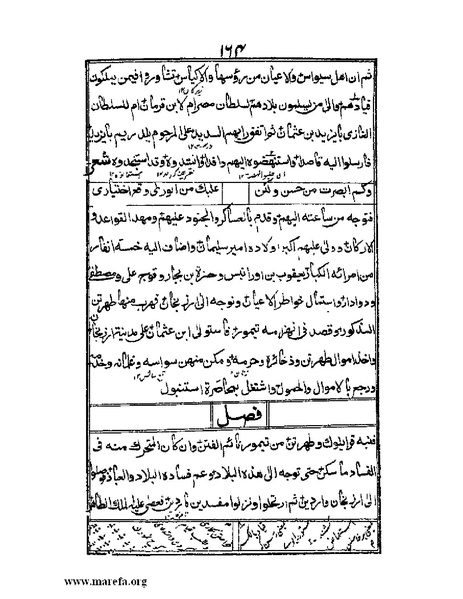 ١٦٤
ثم ان اهل سيواس والاعيان من رؤسها والاكياس تشاوروا فيمن يملكون
قيادهم والى من يسلمون بلادهم السلطان مصر ام لابن قرمان ام للسلطان
الغازى بايزيد بن عثمان ثم اتفق رايهم السديد على المرحوم يلدريم بايزيد
فارسلوا اليه قاصدا واستنهضوه اليهم وافدا وانشدوه وقد استنجدوه شعر
وكم ابصرت من حسن ولكن عليك من الورى وقع اختيارى
فتوجه من ساعته اليهم وقدم بالعساكر والجنود عليهم ومهد القواعد و
الاركان وولى عليهم اكبر اولاده امير سليمان واضاف اليه خمسة انفار
من امرائه الكبار يعقوب بن اورانبس وحمزة بن بجار وقوج على ومصطفى
ودوادار واستمال خواطر الاعيان وتوجه الى ارزنجان فهرب منها طهرتن
المذكور وقصد فى انهزامه تيمور فاستولى ابن عثمان على مدينة ارزنجان
واخذ اموال طهرتن وذخائره وحرمه ومكن منهن سواسه وغلمانه وخدمه
ورجع بالاموال والحمول واشتغل بمحاصرة استنبول
فصل
فنبه قرايلوك وطهرتن من تيمور نائم الفتن وان كان المتحرك منه فى
الفساد ما سكن حتى توجه الى هذه البلاد وعم فساده البلاد والعباد فوصلوا
الى ارزنجان واردين ثم ارتحلوا ونزلوا مفسدين
www.marefa.org